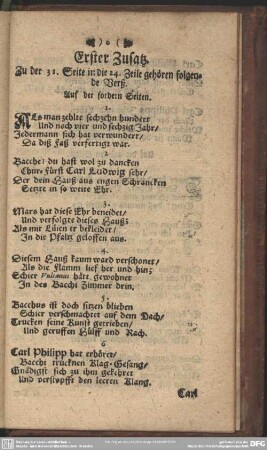 ) o (
Erster Zusatz.
Zu der 31. Seite in die 24. Zeile gehören folgen-
de Verß.
Auf der fordern Seiten.
1.
Als man zehlte sechzehn hundert
Und noch vier und sechzig Jahr/
Jedermann sich hat verwundert/
Da diß Faß verfertigt war.
2.
Bacche! du hast wol zu dancken
Chur-Fürst Carl Ludwig sehr/
Der dein Hauß aus engen Schrancken
Setzte in so weite Ehr.
3.
Mars hat diese Ehr beneidet/
Und verfolgte dieses Hauß;
Als mit bekleidet/
In die Pfaltz geloffen aus.
4.
Diesem Hauß kaum ward verschonet/
Als die Flamm lief her und hin;
Schier Vulcanus hätt gewohnet
In des Bacchi Zimmer drin.
5.
Bacchus ist doch sitzen blieben
Schier verschmachtet auf dem Dach/
Trucken seine Kunst getrieben/
Und geruffen Hülff und Rach.
6
Carl Philipp hat erhöret/
Bacchi trucknen Klag-Gesang/
Gnädigst sich zu ihm gekehret
Und verstopfft den leeren Klang.
Carl